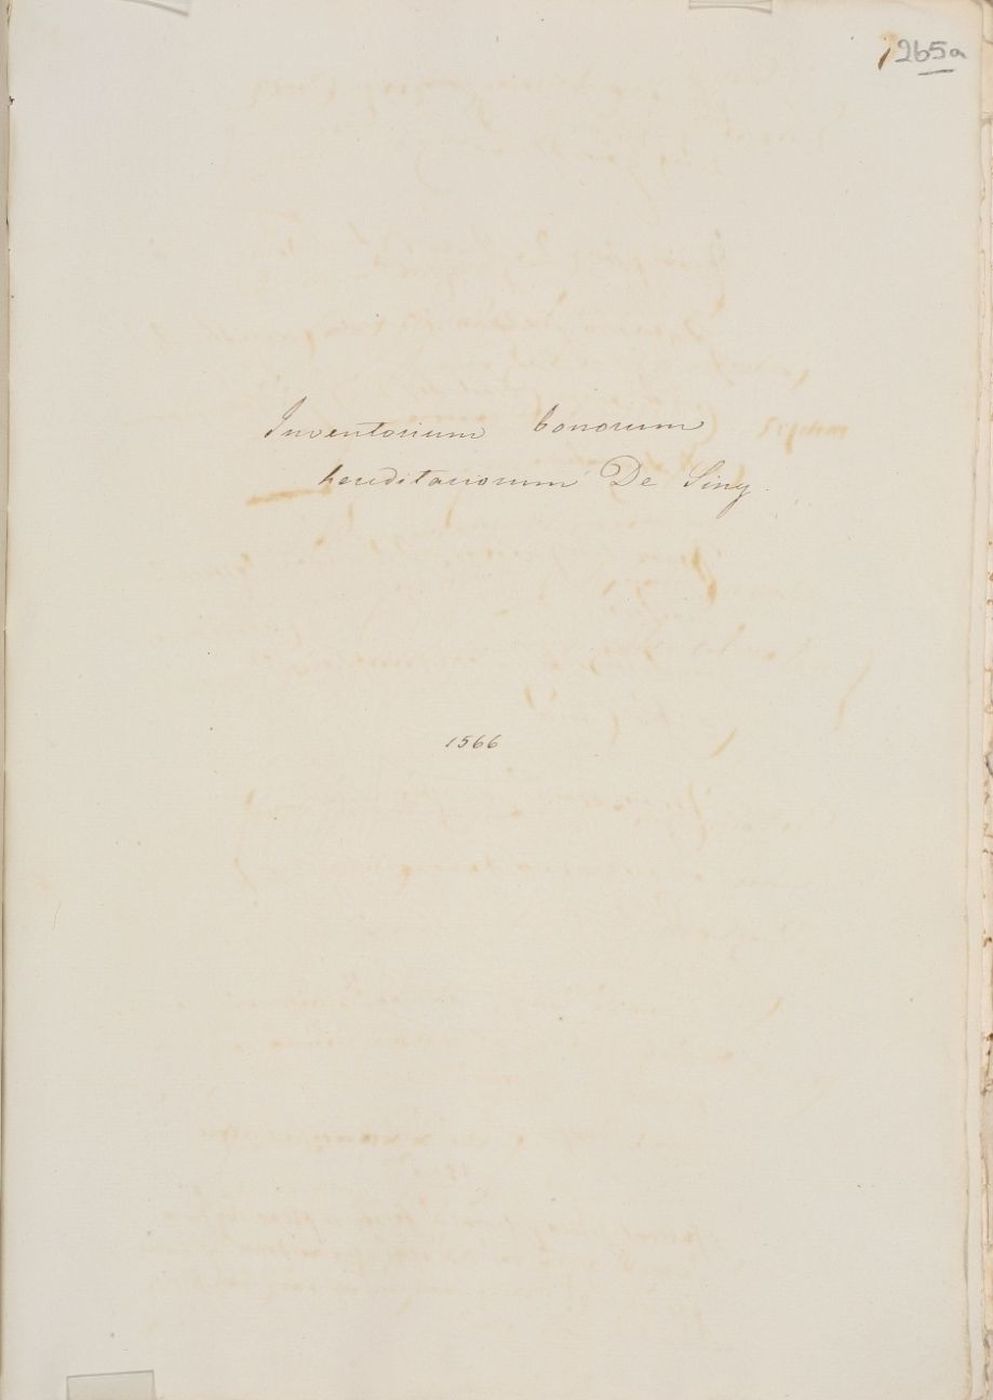 265a
Inventorium bonorum
hereditariorum De Siny
1566